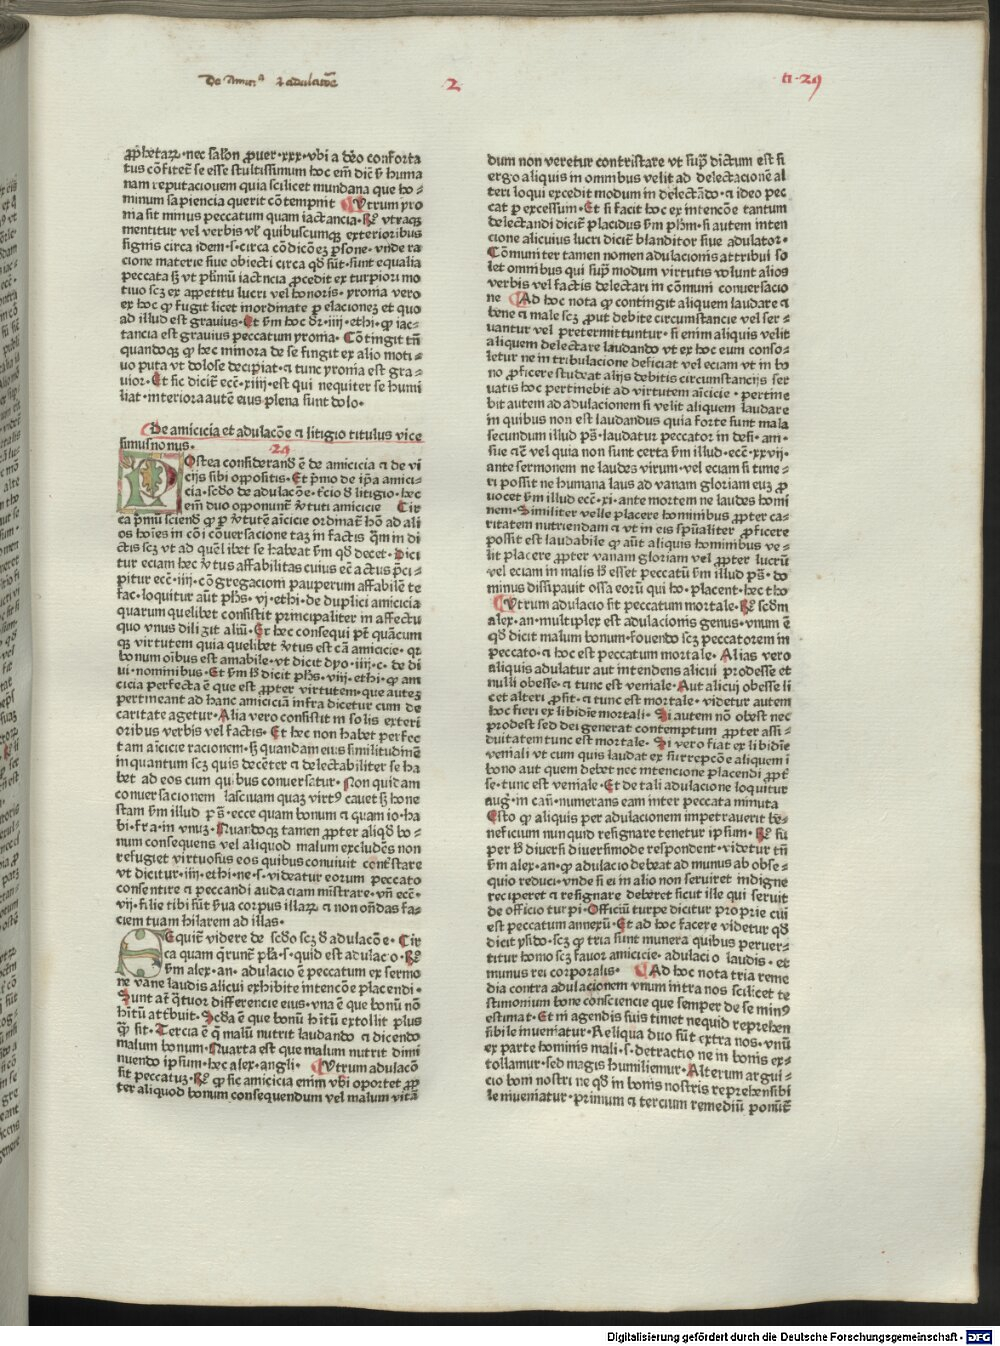 De Amic͂ª ⁊ adulac̃oe 2 ti · 29
ꝓphetaꝝ · nec salõn ꝓuer · xxx · vbi a deo conforta
tus cõfitet᷑ se esse stultissimum hoc em̃ dic̃ ẜm huma
nam reputacionem quia scilicet mundana que ho⸗
minum sapiencia querit cõtempnit Utrum yro
nia sit minus peccatum quam iactancia · Rº vtraqꝫ
mentitur vel verbis vel᷑ quibuscumqꝫ exterioribus
signis circa idem · s · circa cõdicõeꝫ ꝑsone · vnde ra
cione materie siue obiecti circa qd̃ sũt · sunt equalia
peccata sꝫ vt pl̃imũ iactñcia ꝓcedit ex turpiori mo
tiuo scꝫ ex appetitu lucri vel honoris · yronia vero
ex hoc ꝙ fugit licet inordinate ꝑ elacionem et quo
ad illud est grauius · Et ẜm hoc dr̃ · iiij · ethi · ꝙ iac⸗
tancia est grauius peccatum yronia · Cõtingit tñ
quandoqꝫ ꝙ hec minora de se fingit ex alio moti⸗
uo puta vt dolose decipiat · ⁊ tunc yronia est gra⸗
uior · Et sic dicit᷑ ecc̃ · xiiij · est qui nequiter se humi
liat · interiora autem eius plena sunt dolo ·
De amicicia et adulacõe ⁊ litigio titulus vice
simusnonus · 29
POstea considerand᷑ ẽ de amicicia ⁊ de vi
cijs sibi oppositis · Et p̃mo de ip̃a amici⸗
cia · sc̃do de adulacõe · t̃cio d̃ litigio · hec
em̃ duo opponunt᷑ ṽtuti amicicie Cir
ca p̃mũ sciend᷑ ꝙ ꝑ ṽtutẽ aĩcicie ordinat᷑ hõ ad ali
os hoĩes in cõi cõuersacione tam in factis q̃m in di
ctis scꝫ vt ad quẽlibet se habeat ẜm qd̃ decet · Dici
tur eciam hec ṽtus affabilitas cuius ecc̃ actus p̃ci⸗
pitur ecc̃ · iiij · cõgregacioni pauperum affabilẽ te
fac · loquitur aũt ph̃s · vj · ethi · de duplici amicicia
quarum quelibet consistit principaliter in affectu
quo vnus diligit aliũ · Et hec consequi põt quãcum
qꝫ virtutem quia quelibet ṽtus est cã amicicie · qr
bonum oĩbus est amabile · vt dicit dyo · iiij · c · de di
ui · nominibus · Et ẜm h̃ dicit ph̃s · viij · ethi · ꝙ am
cicia perfecta ẽ que est ꝓpter virtutem · que auteꝫ
pertineant ad hanc amiciciã infra dicetur cum de
caritate agetur · Alia vero consistit in solis exteri
oribus verbis vel factis · Et hec non habet perfec
tam aĩcicie racionem · sꝫ quandam eius similitudinẽ
in quantum scꝫ quis decẽter ⁊ delectabiliter se ha
bet ad eos cum quibus conuersatur · Non quidam
conuersacionem lasciuam quaꝫ virt9 cauet sꝫ hone
stam ẜm illud p̃s̃ · ecce quam bonum ⁊ quam io · ha
bi · fra · in vnuꝫ · Quandoqꝫ tamen ꝓpter aliqd̃ bo⸗
num consequens vel aliquod malum excludẽs non
refugiet virtuosus eos quibus conuiuit cont᷑stare
vt dicitur · iiij · ethi · ne · s · videatur eorum peccato
consentire ⁊ peccandi audaciam mĩstrare · vñ ecc̃ ·
vij · filie tibi sũt ẜua corpus illaꝝ ⁊ non oñdas fa⸗
ciem tuam hilarem ad illas ·
SEquit᷑ videre de sc̃do scꝫ d̃ adulacõe · Cir
ca quam q̃runt᷑ pl̃a · s · quid est adulac̃o · Rº
ẜm alex · an · adulacio ẽ peccatum ex sermo
ne vane laudis alicui exhibite intencõe placendi ·
Sunt aũt q̃tuor differencie eius · vna ẽ que bonũ nõ
hĩtũ at᷑buit · Sc̃da ẽ que bonũ hĩtũ extollit plus
ꝙ̃ sit · Tercia ẽ q̃ malũ nutrit laudando ⁊ dicendo
malum bonum · Quarta est que malum nutrit dimi
nuendo ipsum · hec alex · angli · Utrum adulacõ
sit peccatuꝫ · Rº ꝙ sic amicicia enim vbi oportet ꝓp
ter aliquod bonum consequendum vel malum vitã
dum non veretur contristare vt sup̃ dictum est si
ergo aliquis in omnibus velit ad delectacionẽ al
teri loqui excedit modum in delectãdo · ⁊ ideo pec
cat ꝑ excessum · Et si facit hoc ex intencõe tantum
delectandi dicit᷑ placidus ẜm ph̃m · si autem inten
cione alicuius lucri dicit᷑ blanditor siue adulator ·
Cõmuniter tamen nomen adulacionis attribui so
let omnibus qui sup̃ modum virtutis volunt alios
verbis vel factis delectari in cõmuni conuersacio
ne Ad hoc nota ꝙ contingit aliquem laudare ⁊
bene ⁊ male scꝫ ꝓut debite circumstancie vel ser⸗
uantur vel pretermittuntur · si enim aliquis velit
aliquem delectare laudando vt ex hoc eum conso⸗
letur ne in tribulacione deficiat vel eciam vt in bo
no ꝓficere studeat alijs debitis circumstancijs ser
uatis hoc pertinebit ad virtutem aĩcicie · pertine
bit autem ad adulacionem si velit aliquem laudare
in quibus non est laudandus quia forte sunt mala
secundum illud p̃s̃ · laudatur peccator in desi · ani ·
sue ⁊c̃ vel quia non sunt certa ẜm illud · ecc̃ · xxvij ·
ante sermonem ne laudes virum · vel eciam si time⸗
ri possit ne humana laus ad vanam gloriam euꝫ ꝓ
uocet ẜm illud ecc̃ · xi · ante mortem ne laudes homi
nem · Similiter velle placere hominibus ꝓpter ca⸗
ritatem nutriendam ⁊ vt in eis spũaliter ꝓficere
possit est laudabile ꝙ aũt aliquis hominibus ve⸗
lit placere ꝓpter vanam gloriam vel ꝓpter lucrũ
vel eciam in malis h̃ esset peccatũ ẜm illud p̃s̃ · do
minus dissipauit ossa eorũ qui ho · placent · hec tho
Utrum adulacio sit peccatum mortale · Rº sc̃dm
alex · an · multiplex est adulacionis genus · vnum ẽ
qd̃ dicit malum bonum · fouendo scꝫ peccatorem in
peccato · ⁊ hoc est peccatum mortale · Alias vero
aliquis adulatur aut intendens alicui prodesse et
nulli obesse · ⁊ tunc est veniale · Aut alicui obesse li
cet alteri ꝓsit · ⁊ tunc est mortale · videtur autem
hoc fieri ex libidĩe mortali · Si autem nõ obest nec
prodest sed dei generat contemptum ꝓpter assi⸗
duitatem tunc est mortale · Si vero fiat ex libidĩe
veniali vt cum quis laudat ex surrepcõe aliquem ĩ
bono aut quem debet nec intencione placendi ꝓpt᷑
se · tunc est veniale · Et de tali adulacione loquitur
aug᷑ · in cañ · numerans eam inter peccata minuta
Esto ꝙ aliquis per adulacionem impetrauerit be⸗
neficium nunquid resignare tenetur ipsum · Rº su
per h̃ diuersi diuersimode respondent · videtur tñ
ẜm alex · an · ꝙ adulacio debeat ad munus ab obse⸗
quio reduci · vnde si ei in alio non seruiret indigne
reciperet ⁊ resignare deberet sicut ille qui seruit
de officio turpi · Officiũ turpe dicitur proprie cui
est peccatum annexũ · Et ad hoc facere videtur qd̃
dicit ysido · scꝫ ꝙ tria sunt munera quibus peruer⸗
titur homo scꝫ fauor amicicie · adulacio laudis · et
munus rei corporalis · Ad hoc nota tria reme
dia contra adulacionem vnum intra nos scilicet te
stimonium bone consciencie que semper de se min9
estimat · Et in agendis suis timet nequid reprehen
sibile inueniatur · Reliqua duo sũt extra nos · vnũ
ex parte hominis mali · s · detractio ne in bonis ex⸗
tollamur · sed magis humiliemur · Alterum argui⸗
cio boni nostri ne qd̃ in bonis nostris reprehensibi
le inueniatur · primum ⁊ tercium remediũ ponũt᷑
Digitalisierung gefördert durch die Deutsche Forschungsgemeinschaft - DFG